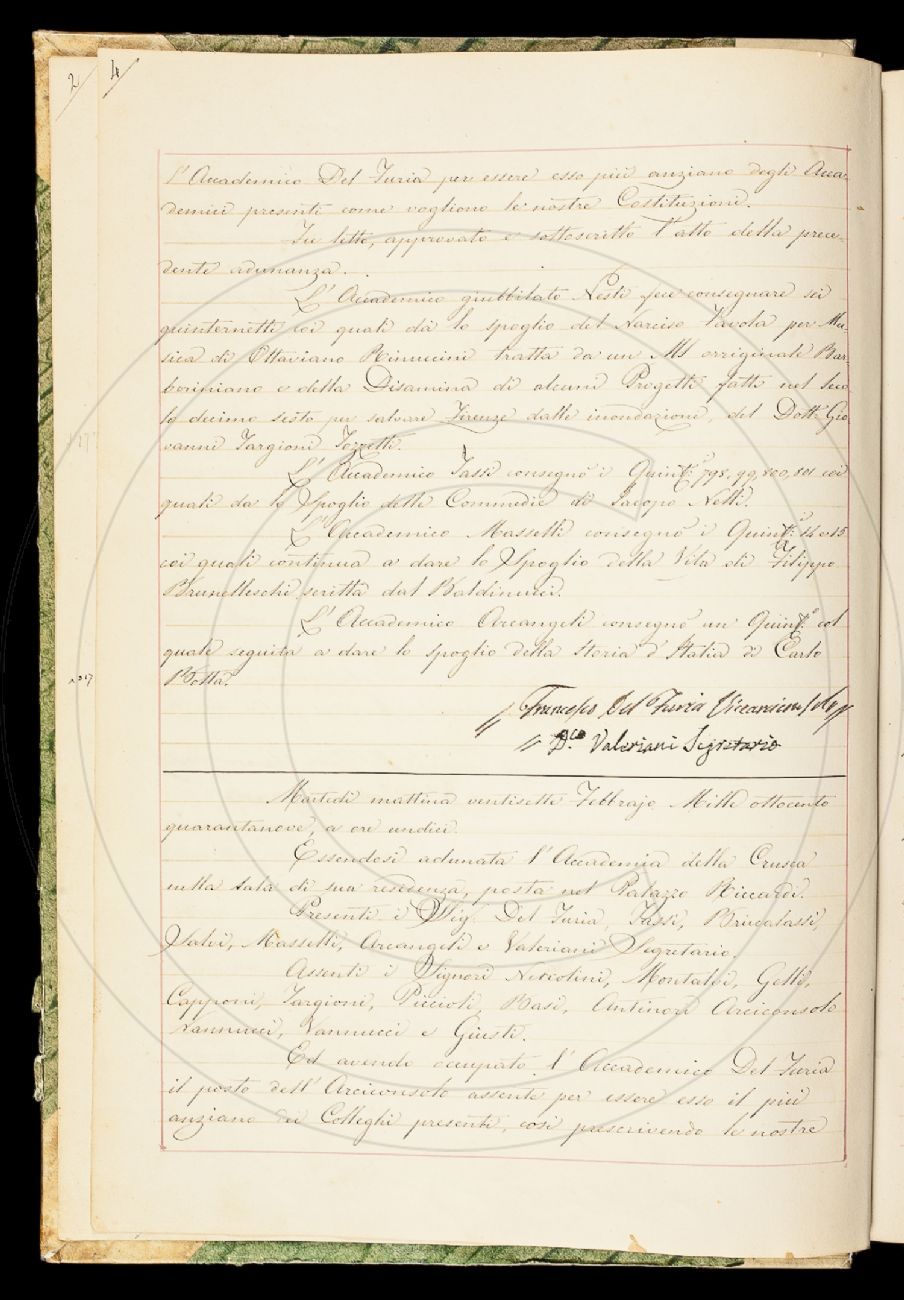 2 4
l'Accademico Del Furia per essere esso più anziano degli Acca-
demici presenti come vogliono le nostre Costituzioni.
Fu letto, approvato e sottoscritto l'atto della prece-
dente adunanza.
L'Accademico giubbilato Nesti fece consegnare sei
quinternetti coi quali dà lo spoglio del Narciso Favola per Mu-
sica di Ottaviano Rinuccini tratta da un Ms originale Bar-
beriniano e della Disamina di alcuni Progetti fatti nel Seco-
lo decimo sesto per salvare Firenze dalle inondazioni, del Dott. Gio-
vanni Targioni Tozzetti.
L'Accademico Tassi consegnò i Quint.i 798, 99, 800, 801 coi
quali dà lo Spoglio delle Commedie di Jacopo Nelli.
L'Accademico Masselli consegnò i Quint.i 14 e 15
coi quali continua a dare lo Spoglio della Vita di Filippo
Brunelleschi scritta dal Baldinucci.
L'Accademico Arcangeli consegnò un Quint.o col
quale seguita a dare lo spoglio della Storia d'Italia di Carlo
Botta.
// Francesco Del Furia Vicearciconsolo //
// D.co Valeriani Segretario
Martedì mattina ventisette Febbrajo Mille ottocento
quarantanove, a ore undici.
Essendosi adunata l'Accademia della Crusca
nella Sala di sua residenza, posta nel Palazzo Riccardi.
Presenti i Sig.i Del Furia, Tassi, Brucalassi,
Salvi, Masselli, Arcangeli e Valeriani Segretario.
Assenti i Signori Niccolini, Montalvi, Gelli,
Capponi, Targioni, Piccioli, Basi, Antinori Arciconsolo
Nannucci, Vannucci e Giusti.
Ed avendo occupato l'Accademico Del Furia
il posto dell'Arciconsolo assente per essere esso il più
anziano dei Colleghi presenti, così prescrivendo le nostre